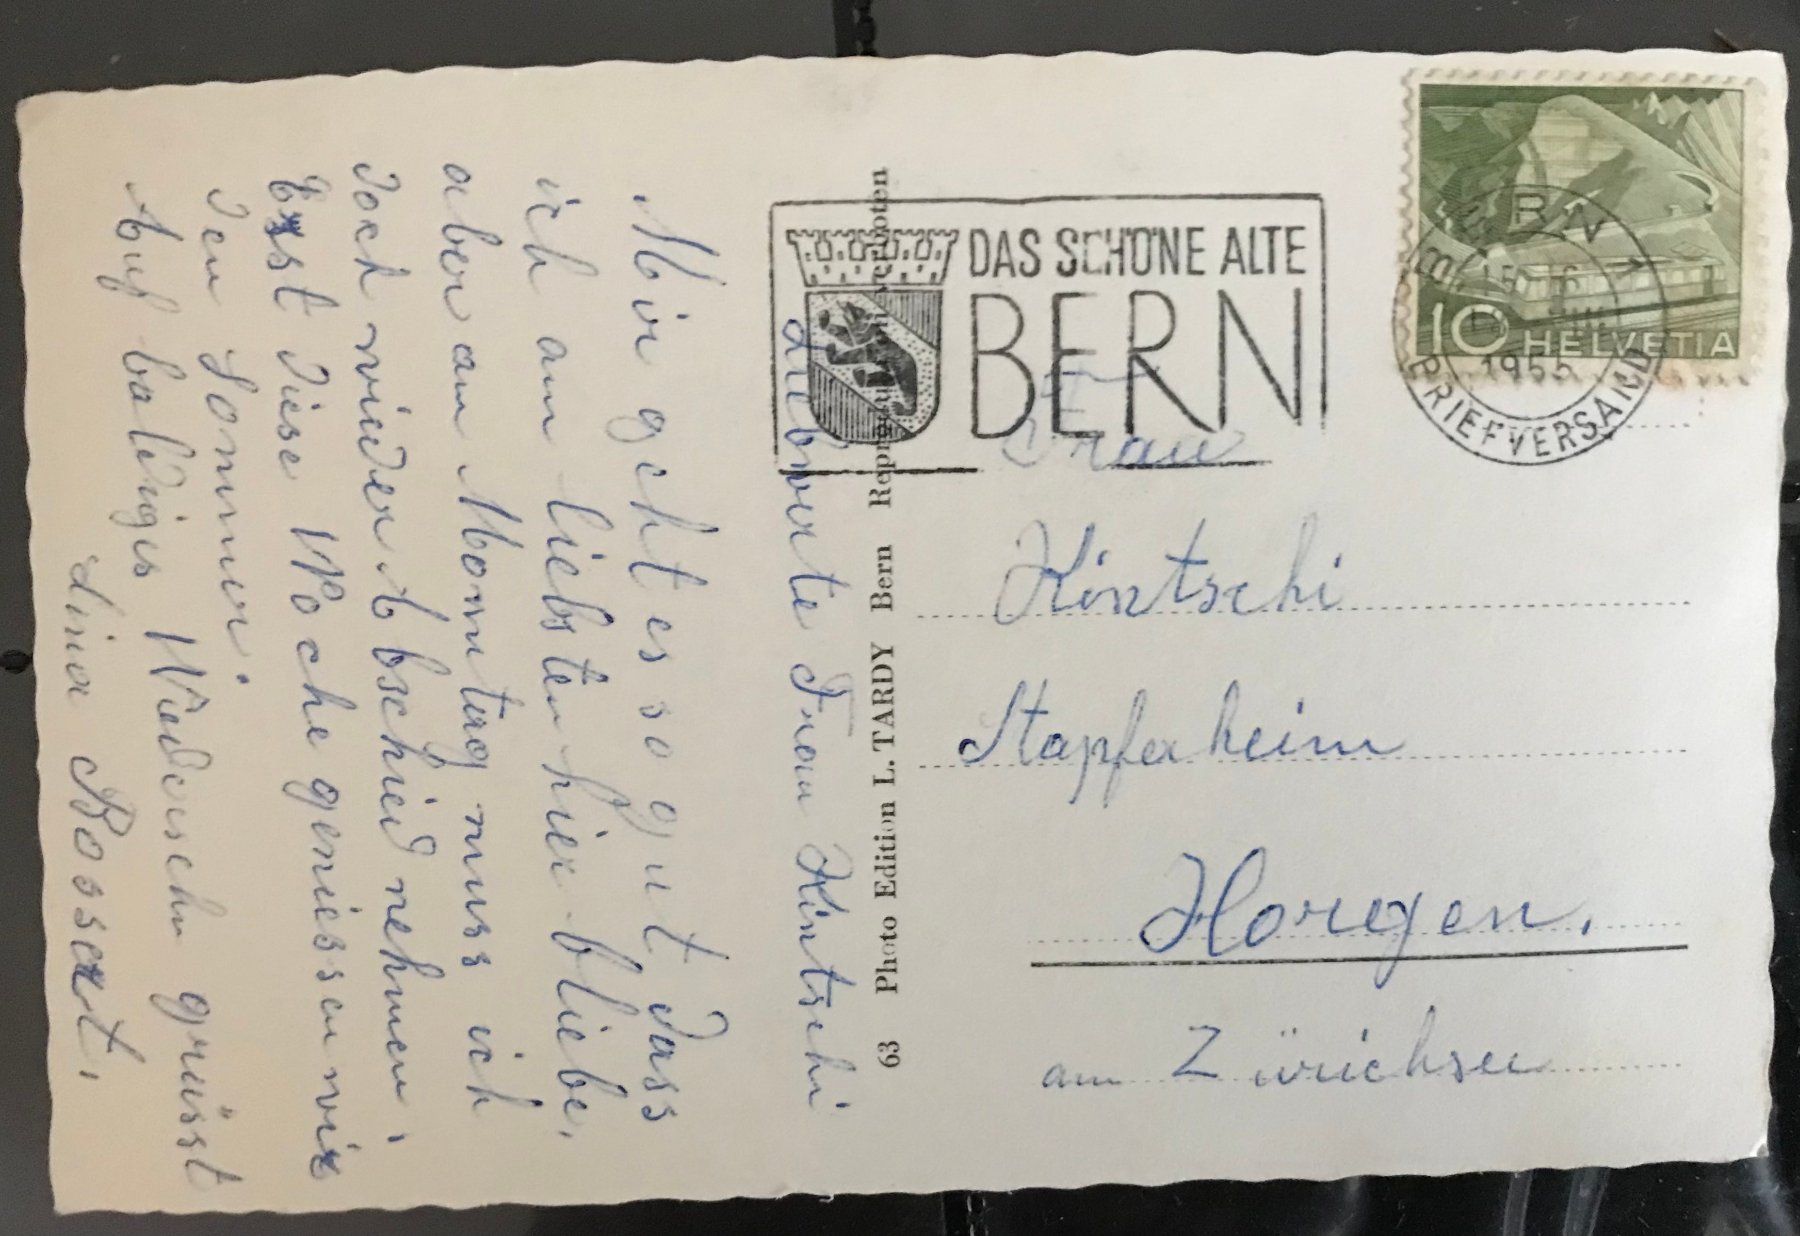 Liebwerte Frau Kintschi
Mir geht es so gut dass
ich am liebsten hier bliebe,
aber am Monntag muss ich
doch wieder Abschied nehmen,
Erst diese Woche geniessen wir
den Sommer.
Auf baldiges Wiedersehn grüsst
Lina Bossert.
63 Photo Edition L. TARDY Bern Reproduktion verboten
DAS SCHÖNE ALTE
BERN
BERN 1
1955
BRIEFVERSAND
10 HELVETIA
Frau
Kintschi
Stapferheim
Horgen.
am Zürichsee